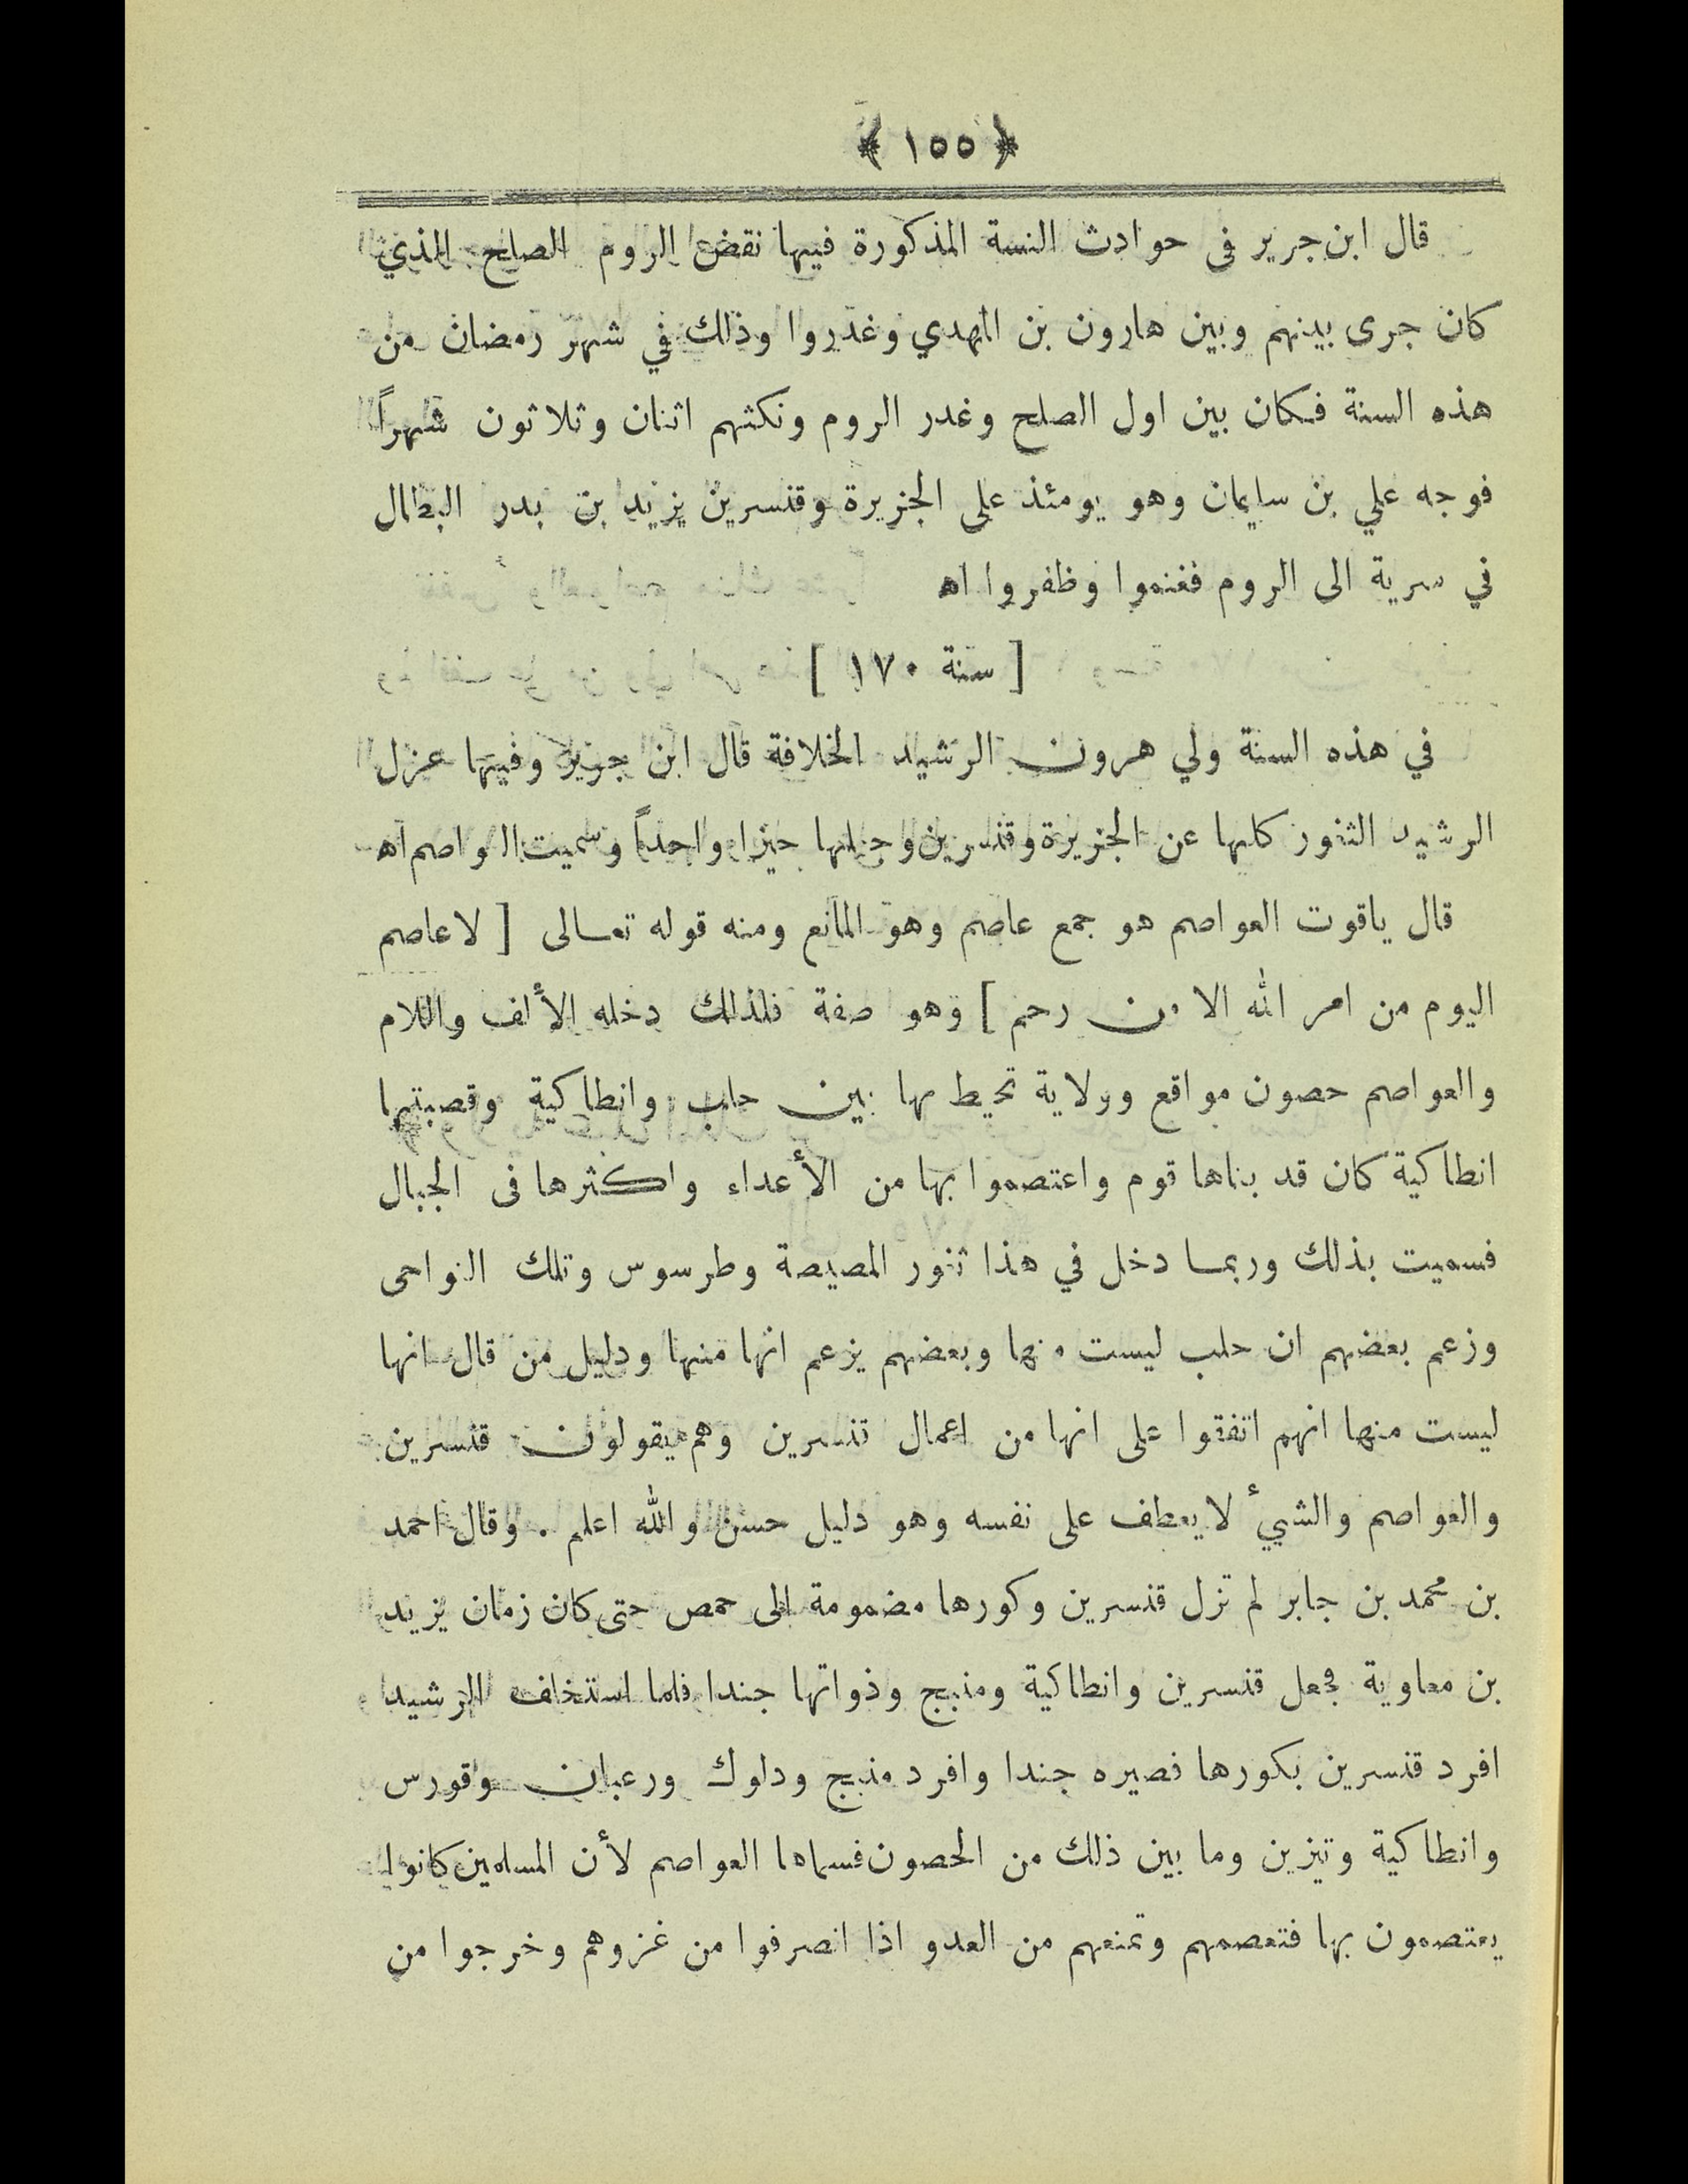 ﴿ ١٥٥ ﴾
قال ابن جرير فى حوادث النسة المذكورة فيها نقض الروم الصلح الذي
كان جرى بينهم وبين هارون بن المهدي وغدروا وذلك في شهر رمضان من
هذه السنة فكان بين اول الصلح وغدر الروم ونكثهم اثنان وثلاثون شهراً
فوجه علي بن سليمان وهو يومئذ على الجزيرة وقنسرين يزيد بن بدر البطال
في سرية الى الروم فغنموا وظفروا اه
[ سنة ١٧٠ ]
في هذه السنة ولي هرون الرشيد الخلافة قال ابن جرير وفيها عزل
الرشيد الثغور كلها عن الجزيرة وقنسرين وجعلها حيزا واحداً وسميت العواصم اه
قال ياقوت العواصم هو جمع عاصم وهو المانع ومنه قوله تعالى [ لا عاصم
اليوم من امر الله الا من رحم ] وهو صفة فلذلك دخله الألف واللام
والعواصم حصون مواقع وولاية تحيط بها بين حلب وانطاكية وقصبتها
انطاكية كان قد بناها قوم واعتصموا بها من الأعداء واكثرها فى الجبال
فسميت بذلك وربما دخل في هذا ثغور المصيصة وطرسوس وتلك النواحى
وزعم بعضهم ان حلب ليست منها وبعضهم يزعم انها منها ودليل من قال انها
ليست منها انهم اتفقوا على انها من اعمال قنسرين وهم يقولون قنسرين
والعواصم والشيئ لا يعطف على نفسه وهو دليل حسن والله اعلم . وقال احمد
بن محمد بن جابر لم تزل قنسرين وكورها مضمومة الى حمص حتى كان زمان يزيد
بن معاوية فجعل قنسرين وانطاكية ومنبج وذواتها جندا فلما استخلف الرشيد
افرد قنسرين بكورها فصيره جندا وافرد منبج ودلوك ورعبان وقورس
وانطاكية وتيزين وما بين ذلك من الحصون فسماها العواصم لأن المسلمين كانوا
يعتصمون بها فتعصمهم وتمنعهم من العدو اذا انصرفوا من غزوهم وخرجوا من